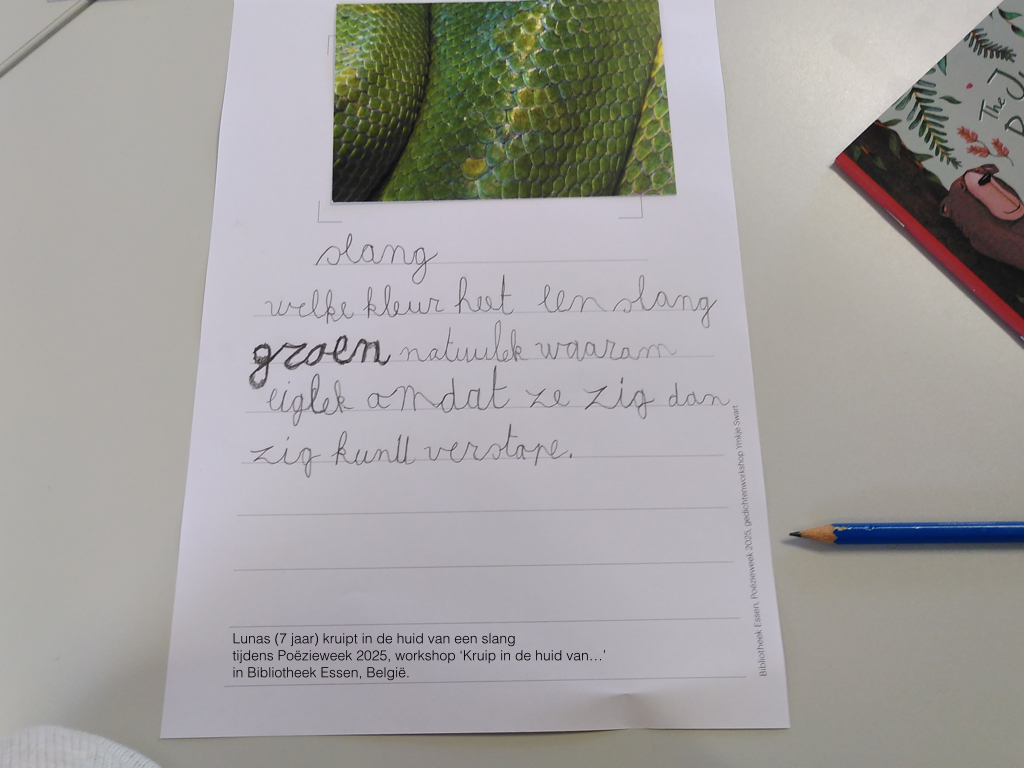 slang
welke kleur heet een slang
groen natuulek waarom
eiglek omdat ze zig dan
zig kunll verstope.
Lunas (7 jaar) kruipt in de huid van een slang
tijdens Poëzieweek 2025, workshop ‘Kruip in de huid van…’
in Bibliotheek Essen, België.
Bibliotheek Essen, Poëzieweek 2025, gedichtenworkshop Ymkje Swart
The